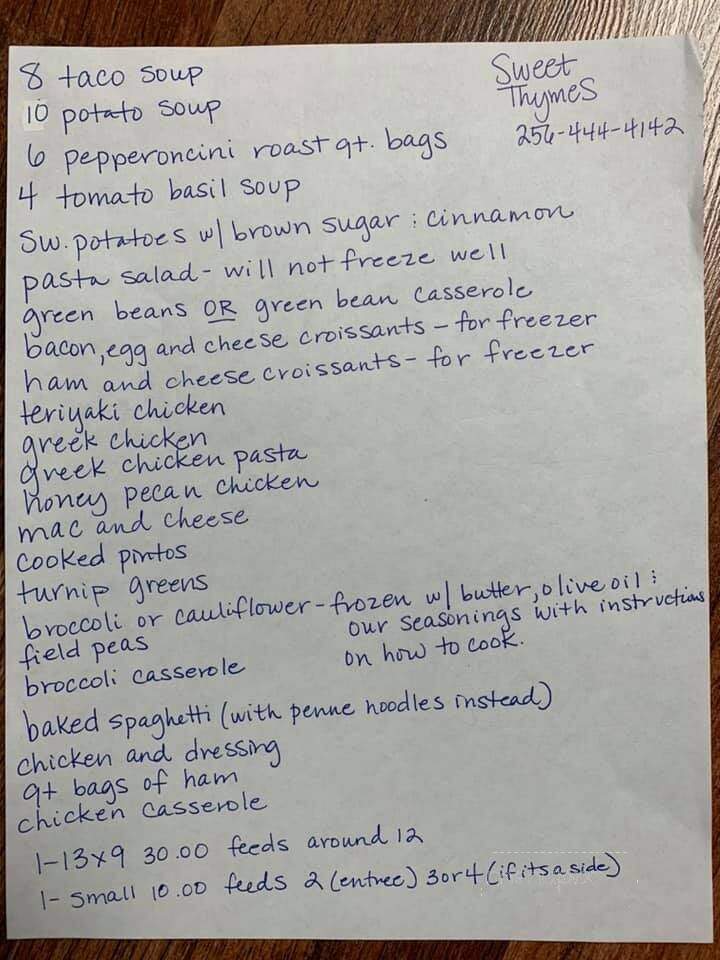 8 taco soup
Sweet
Thymes
256-444-4142
10 potato soup
6 pepperoncini roast qt. bags
4 tomato basil soup
Sw. potatoes w/ brown sugar : cinnamon
pasta salad - will not freeze well
green beans OR green bean casserole
bacon, egg and cheese croissants - for freezer
ham and cheese croissants - for freezer
teriyaki chicken
greek chicken
greek chicken pasta
honey pecan chicken
mac and cheese
cooked pintos
turnip greens
broccoli or cauliflower - frozen w/ butter, olive oil :
our seasonings with instructions
on how to cook.
field peas
broccoli casserole
baked spaghetti (with penne noodles instead)
chicken and dressing
qt bags of ham
chicken casserole
1-13x9 30.00 feeds around 12
1- small 10.00 feeds 2 (entree) 3 or 4 (if its a side)